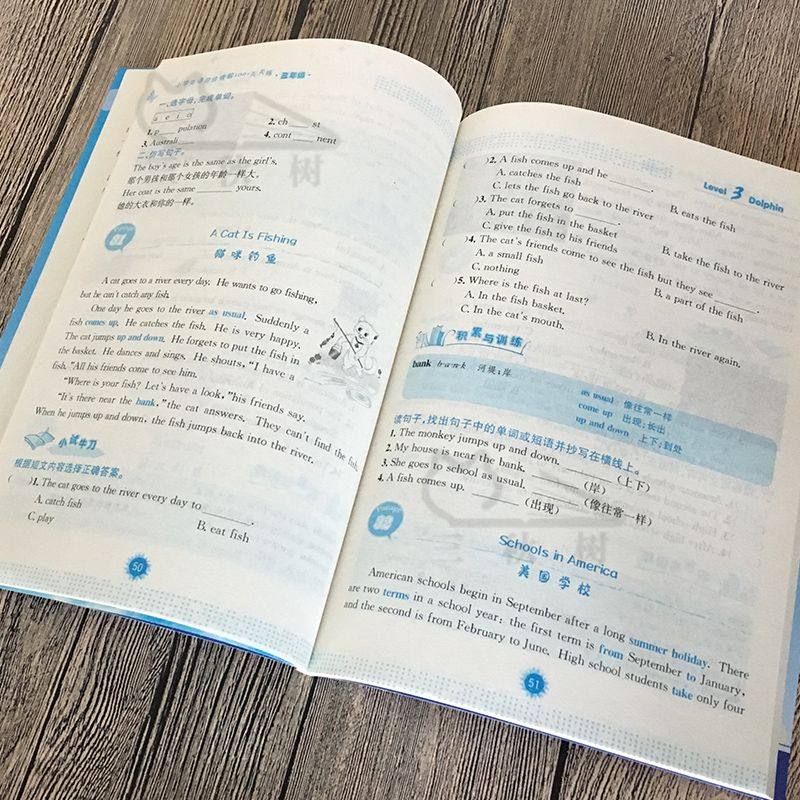 小学英语阅读
100
天天练·三年级·
一、选字母,完成单词。
a e i o
1. p____pulation
2. ch____st
3. Australi____
4. cont____nent
二、仿写句子。
The boy's age is the same as the girl's.
那个男孩和那个女孩的年龄一样大。
Her coat is the same ______ yours.
她的大衣和你的一样。
81
A Cat Is Fishing
猫咪钓鱼
A cat goes to a river every day. He wants to go fishing,
but he can't catch any fish.
One day he goes to the river as usual. Suddenly a
fish comes up. He catches the fish. He is very happy.
The cat jumps up and down. He forgets to put the fish in
the basket. He dances and sings. He shouts, "I have a
fish. "All his friends come to see him.
"Where is your fish? Let's have a look, "his friends say.
"It's there near the bank, "the cat answers. They can't find the fish.
When he jumps up and down, the fish jumps back into the river.
小试牛刀
根据短文内容选择正确答案。
( )1. The cat goes to the river every day to ______.
A. catch fish
B. eat fish
C. play
50
Level 3 Dolphin
( )2. A fish comes up and he ______.
A. catches the fish
B. eats the fish
C. lets the fish go back to the river
( )3. The cat forgets to ______.
A. put the fish in the basket
B. take the fish to the river
C. give the fish to his friends
( )4. The cat's friends come to see the fish but they see ______.
A. a small fish
B. a part of the fish
C. nothing
( )5. Where is the fish at last?
A. In the fish basket.
B. In the river again.
C. In the cat's mouth.
积累与训练
bank b-a-n-k 河堤;岸
as usual 像往常一样
come up 出现;长出
up and down 上下;到处
读句子,找出句子中的单词或短语并抄写在横线上。
1. The monkey jumps up and down. ______(上下)
2. My house is near the bank. ______(岸)
3. She goes to school as usual. ______(像往常一样)
4. A fish comes up. ______(出现)
82
Schools in America
美国学校
American schools begin in September after a long summer holiday. There
are two terms in a school year: the first term is from September to January,
and the second is from February to June. High school students take only four
51
三秋树